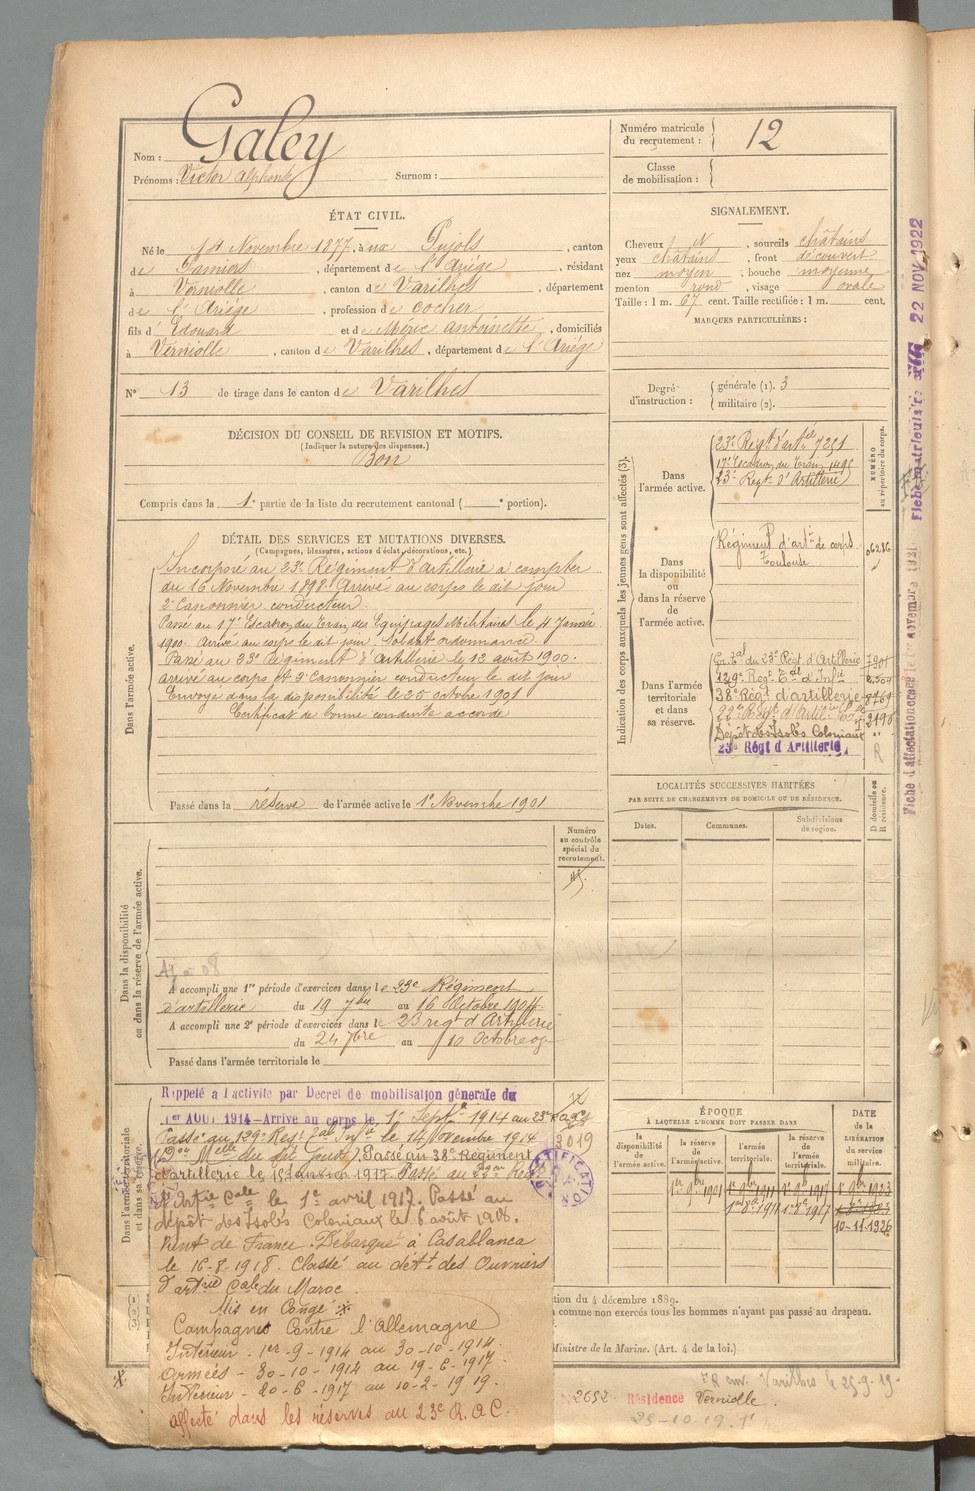 Nom : Galey
Prénoms : Victor Alphonse Surnom :
Numéro matricule du recrutement : 12
Classe de mobilisation :
ÉTAT CIVIL.
Né le 14 Novembre 1877, à aux Pujols, canton
de Pamiers, département de l'Ariége, résidant
à Verniolle, canton de Varilhes, département
de l'Ariége, profession de cocher
fils d'Edouard et de Méric Antoinette, domiciliés
à Verniolle, canton de Varilhes, département de l'Ariége
N° 13 de tirage dans le canton de Varilhes
SIGNALEMENT.
Cheveux N, sourcils châtains
yeux châtains, front découvert
nez moyen, bouche moyenne
menton rond, visage ovale
Taille : 1 m. 67 cent. Taille rectifiée : 1 m. cent.
MARQUES PARTICULIÈRES :
Degré d'instruction : générale (1). 3
militaire (2).
DÉCISION DU CONSEIL DE REVISION ET MOTIFS.
(Indiquer la nature des dispenses.)
Bon
Compris dans la 1e partie de la liste du recrutement cantonal ( e portion).
DÉTAIL DES SERVICES ET MUTATIONS DIVERSES.
(Campagnes, blessures, actions d'éclat, décorations, etc.)
Dans l'armée active.
Incorporé au 23e Régiment d'artillerie à compter
du 16 Novembre 1898. Arrivé au corps le dit jour
2e Canonnier conducteur.
Passé au 17e Escadron du Train des Equipages Militaires le 4 Janvier
1900. Arrivé au corps le dit jour. Soldat ordonnance.
Passé au 23e Régiment d'Artillerie le 12 août 1900.
arrivé au corps et 2e Canonnier conducteur le dit jour
Envoyé dans la disponibilité le 25 octobre 1901
Certificat de bonne conduite accordé
Passé dans la réserve de l'armée active le 1er Novembre 1901
Indication des corps auxquels les jeunes gens sont affectés (3).
NUMÉRO au répertoire du corps.
Dans l'armée active.
23e Régt d'artie 7251
17e Escadron du Train 1495
23e Regt d'Artillerie
Dans la disponibilité ou dans la réserve de l'armée active.
Régiment d'artie de corps
Toulouse
06286
Dans l'armée territoriale et dans sa réserve.
du 23e Régt d'Artillerie 7901
129e Regt Tal d'Infie
38e Régt d'artillerie 8769
22e Regt d'Artil
Dépôt des Isolés Coloniaux
23e Régt d'Artillerie
R
LOCALITÉS SUCCESSIVES HABITÉES
PAR SUITE DE CHANGEMENTS DE DOMICILE OU DE RÉSIDENCE.
Dates. Communes. Subdivisions de région.
D domicile ou R résidence.
Numéro au contrôle spécial du recrutement.
Dans la disponibilité ou dans la réserve de l'armée active.
A accompli une 1re période d'exercices dans le 23e Régiment
d'artillerie du 19 7bre au 16 Octobre 1904.
A accompli une 2e période d'exercices dans le 23 regt d'Artillerie
du 24 7bre au 10 Octobre 07
Passé dans l'armée territoriale le
Dans l'armée territoriale et dans sa réserve.
Rappelé a l'activité par Decret de mobilisation génerale du
1er AOUT 1914 - Arrive au corps le 1er Septe 1914 au 23e
Passé au 129e Regt Tal Infie le 14 Novembre 1914
du dit jour). Passé au 38e Regiment
d'artillerie le 15 Janvier 1917. Passé au 22e Regt
d'Artie Cale le 1er avril 1917. Passé au
dépôt des Isolés Coloniaux le 6 août 1918.
Vient de France. Débarqué à Casablanca
le 16-8-1918. Classé au détt des Ouvriers
d'artie Cale du Maroc.
Mis en Congé
Campagnes Contre l'Allemagne
Intérieur - 1er-9-1914 au 30-10-1914.
Armées - 30-10-1914 au 19-6-1917.
Intérieur - 20-6-1917 au 10-2-1919.
affecté dans les réserves au 23e R.A.C.
ÉPOQUE
À LAQUELLE L'HOMME DOIT PASSER DANS
la disponibilité de l'armée active. la réserve de l'armée active. l'armée territoriale. la réserve de l'armée territoriale.
DATE DE LA LIBÉRATION du service militaire.
1er 9bre 1901 1er 9bre 1911 1er 9bre 1917 1er 9bre 1923
10-11-1926
tion du 4 décembre 1889.
a comme non exercés tous les hommes n'ayant pas passé au drapeau.
Ministre de la Marine. (Art. 4 de la loi.)
N° 2692 Résidence Verniolle.
Varilhes le 25-9-19
25-10-19
22 NOV 1922